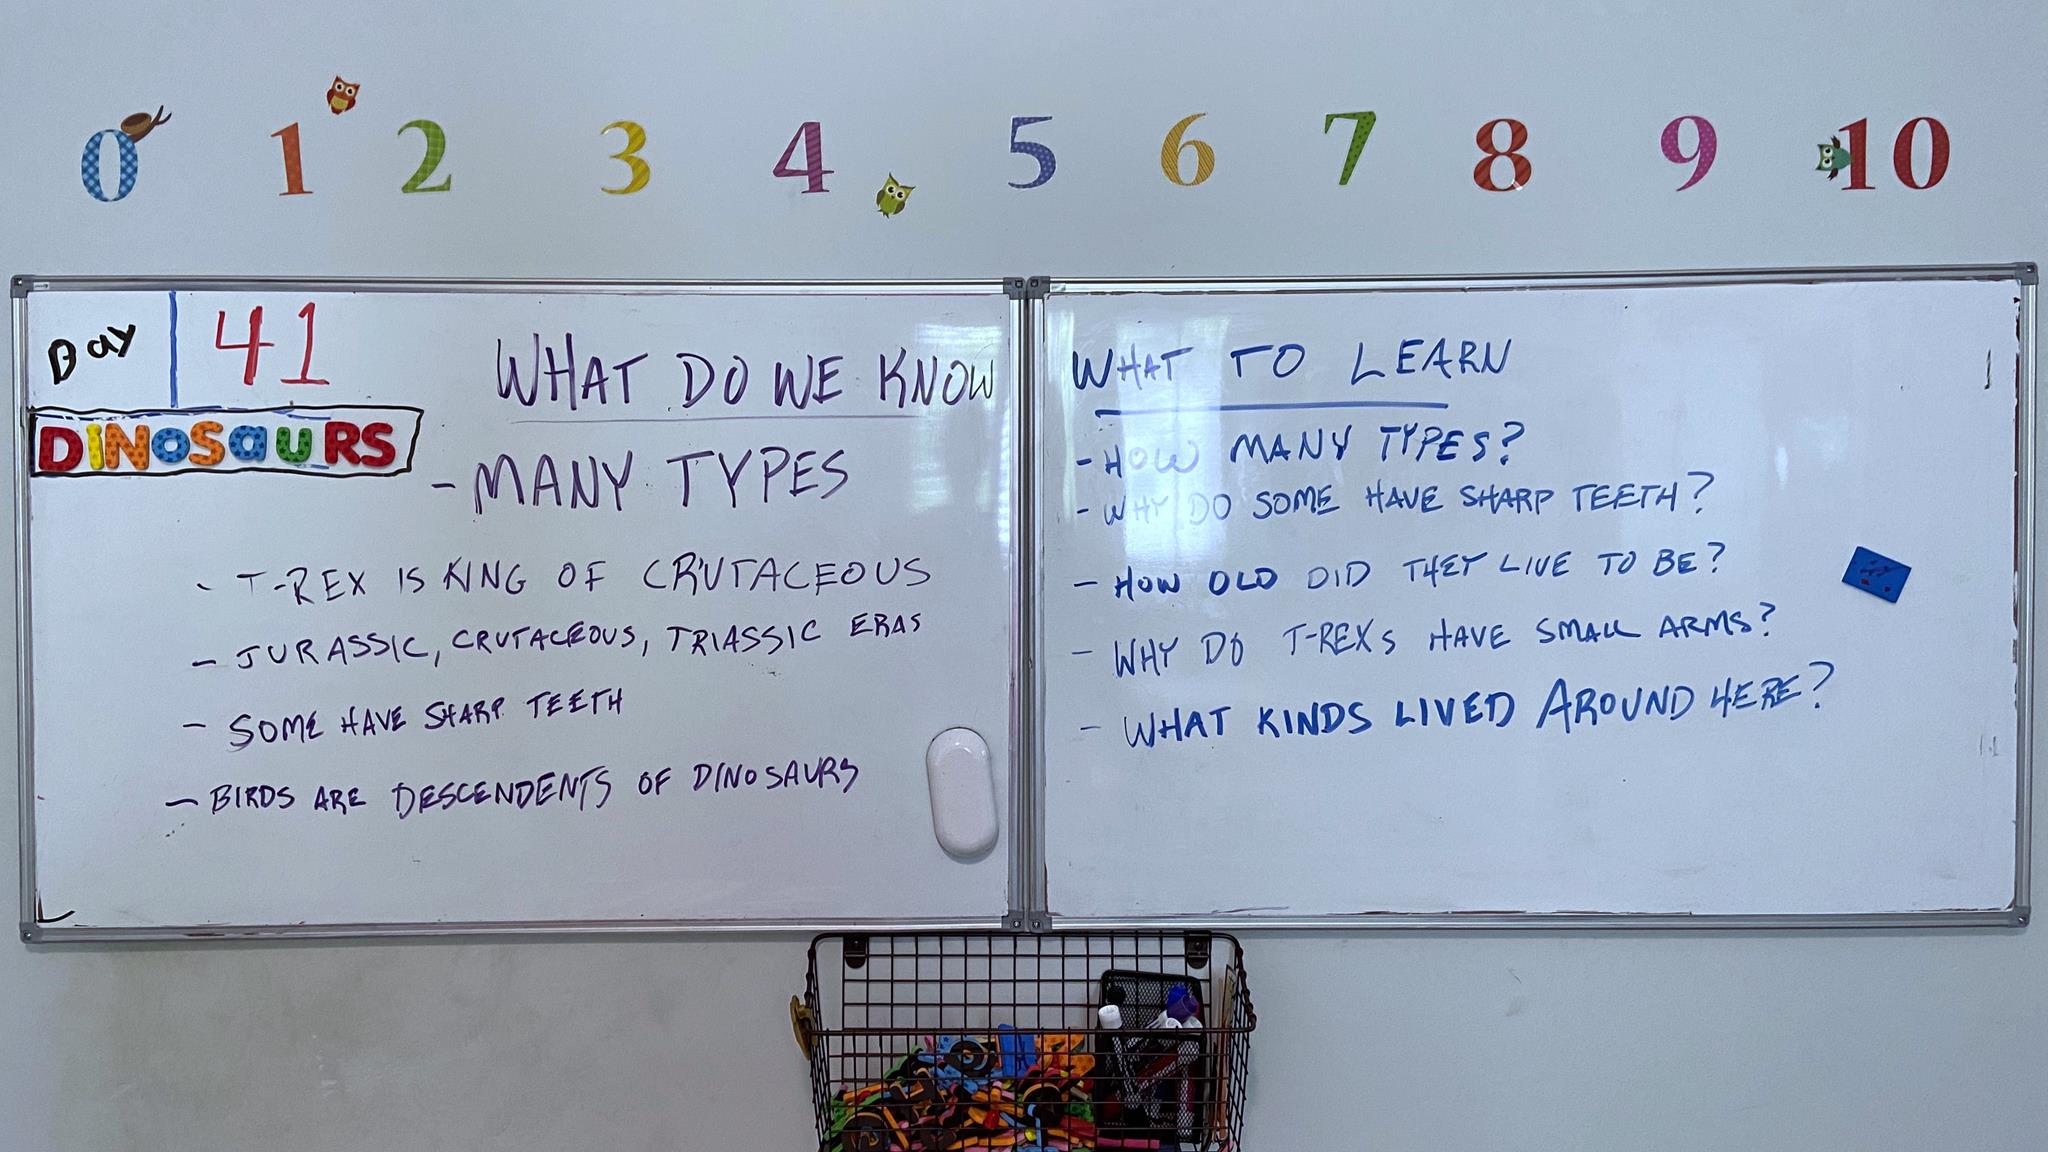 0 1 2 3 4 5 6 7 8 9 10
Day 41
DiNoSauRS
WHAT DO WE KNOW
- MANY TYPES
- T-REX IS KING OF CRUTACEOUS
- JURASSIC, CRUTACEOUS, TRIASSIC ERAS
- SOME HAVE SHARP TEETH
- BIRDS ARE DESCENDENTS OF DINOSAURS
WHAT TO LEARN
- HOW MANY TYPES?
- WHY DO SOME HAVE SHARP TEETH?
- HOW OLD DID THEY LIVE TO BE?
- WHY DO T-REXs HAVE SMALL ARMS?
- WHAT KINDS LIVED AROUND HERE?